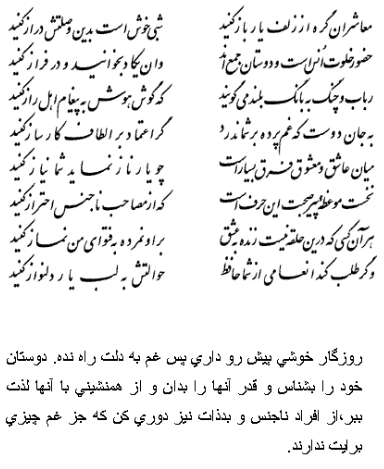 معاشران گره از زلف یار باز کنید شبی خوش است بدین وصلتش دراز کنید
حضور خلوت انس است و دوستان جمع اند وان یکاد بخوانید و در فراز کنید
رباب و چنگ به بانگ بلند می گویند که گوش هوش به پیغام اهل راز کنید
به جان دوست که غم پرده بر شما ندرد گر اعتماد بر الطاف کارساز کنید
میان عاشق و معشوق فرق بسیار است چو یار ناز نماید شما نیاز کنید
نخست موعظه پیر صحبت این حرف است که از مصاحب ناجنس احتراز کنید
هر آن کسی که درین حلقه نیست زنده به عشق بر او نمرده به فتوای من نماز کنید
وگر طلب کند انعامی از شما حافظ حوالتش به لب یار دلنواز کنید
روزگار خوشي پيش رو داري پس غم به دلت راه نده. دوستان
خود را بشناس و قدر آنها را بدان و از همنشيني با آنها لذت
ببر،از افراد ناجنس و بدذات نيز دوري کن که جز غم چيزي
برايت ندارند.